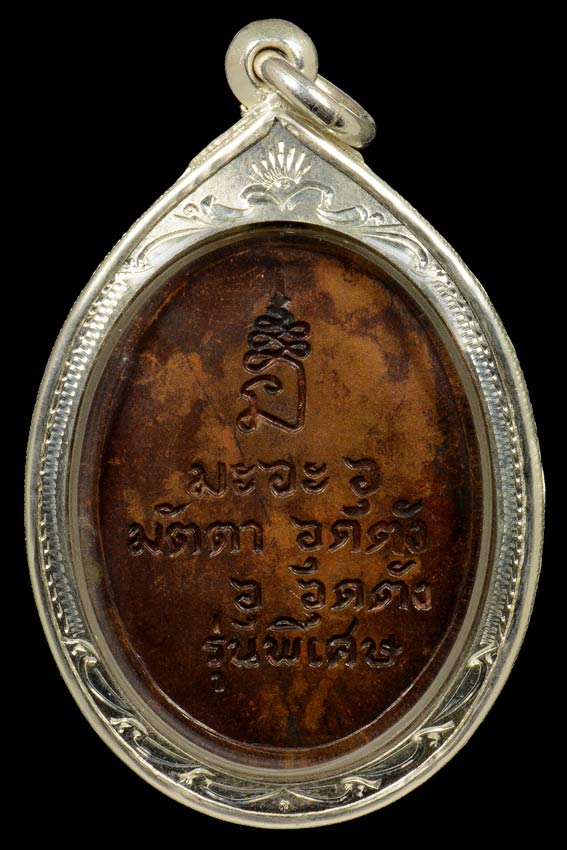 มะอะ อุ
มัตตา อุตตัง
อุ อัดตัง
รุ่นพิเศษ